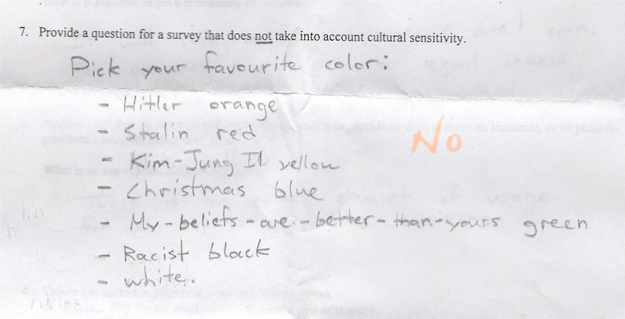 7. Provide a question for a survey that does not take into account cultural sensitivity.
Pick your favourite color:
- Hitler orange
- Stalin red
No
- Kim-Jung Il yellow
- Christmas blue
- My-beliefs-are-better-than-yours green
- Racist black
- white.